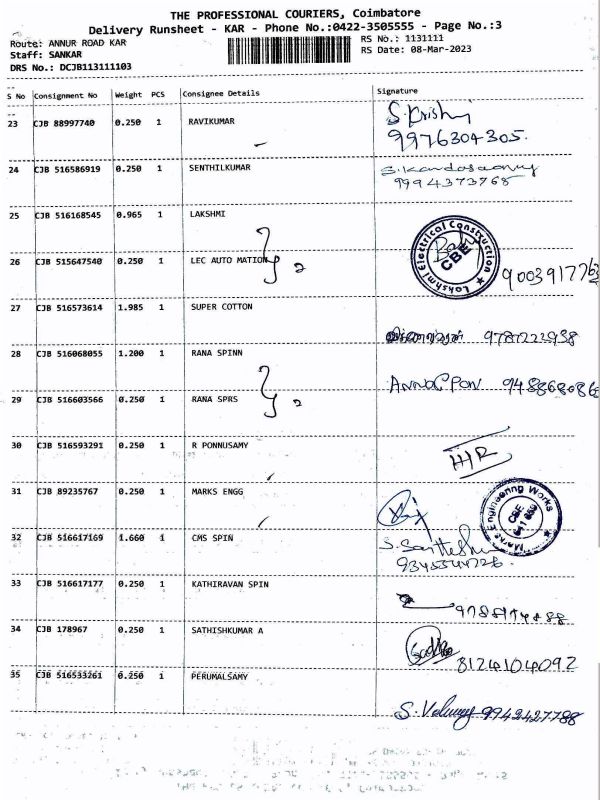 THE PROFESSIONAL COURIERS, Coimbatore
Delivery Runsheet - KAR - Phone No.:0422-3505555 - Page No.:3
Route: ANNUR ROAD KAR
RS No.: 1131111
Staff: SANKAR
RS Date: 08-Mar-2023
DRS No.: DCJB113111103
S No Consignment No Weight PCS Consignee Details Signature
23 CJB 88997740 0.250 1 RAVIKUMAR S. Krishi
9976304305.
24 CJB 516586919 0.250 1 SENTHILKUMAR S. Kandasamy
9994373768
25 CJB 516168545 0.965 1 LAKSHMI
Lakshmi Electrical Construction
CBE
26 CJB 515647540 0.250 1 LEC AUTO MATION 2
9003917763
27 CJB 516573614 1.985 1 SUPER COTTON
9787222938
28 CJB 516068055 1.200 1 RANA SPINN
ANNAPPON 948868086
29 CJB 516603566 0.250 1 RANA SPRS 2
30 CJB 516593291 0.250 1 R PONNUSAMY
HIR
31 CJB 89235767 0.250 1 MARKS ENGG
Marks Engineering Works
CBE
32 CJB 516617169 1.660 1 CMS SPIN
9345344726.
33 CJB 516617177 0.250 1 KATHIRAVAN SPIN
34 CJB 178967 0.250 1 SATHISHKUMAR A
8124104092
35 CJB 516533261 0.250 1 PERUMALSAMY
9942427788